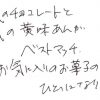 の4ョコレートと
の黄味あんが
ベストマッチ
お気に入りのお菓子の
ひとつにな